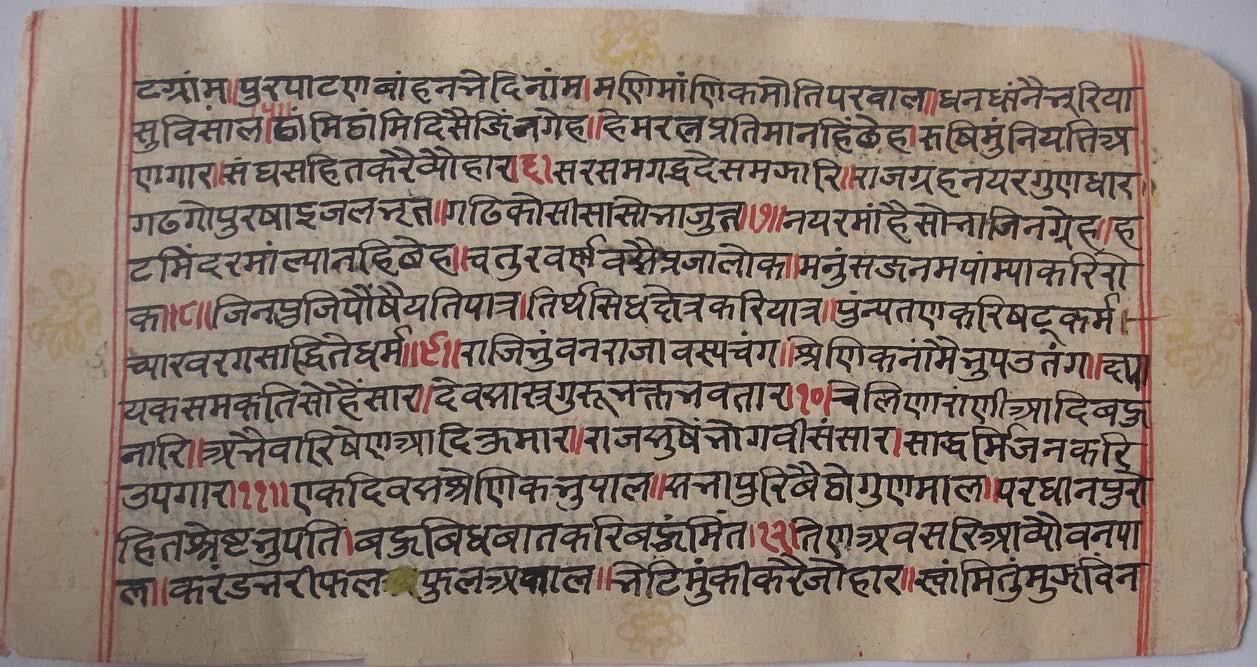 टग्रांम॥पुरपाटणबांहनभेदिनांम।मणिमांणिकमोतिपरवाल॥धनधांनैभूरिया
सुविसाल॥५॥ठांमिठांमिदिसैजिंनगेह॥हेमरत्नप्रतिमानहिंछेह।रूषिमुंनियतिअ
णगार॥संघसहितकरैव्यौहार।६।सरसमगद्धदेसमझारि॥राजग्रहनयरगुणधार॥
गढगोपुरषाइजलभृत॥गढिकोसीसासोभाजुत॥७॥नयरमांहैसोभाजिनग्रेह॥ह
टमिंदरमांल्यानहिछेह॥चतुरवर्णवसैप्रजालोक॥मनुंसजनमपांम्याकरिरो
क॥८॥जिनपुजिपौंषैयतिपात्र॥तिर्थसिधक्षेत्रकरियात्र॥पुंन्यतणकरिषट्कर्म।
च्यारवरगसाद्वितैधर्म॥९॥राजिभुंवनराजावस्यचंग॥श्रेणिकनांमैभुपउतंग॥क्षा
यकसमकतिसोहैंसार॥देवसास्त्रगुरूभक्तभवतार॥१०॥चेलिणाराणीआदिबहु
नारि॥अभैवारिषेणआदिकुमार॥राजसुषेंभोगवीसंसार।साद्धर्मिजनकरि
उपगार॥११॥एकदिवसश्रेणिकभुपाल॥सभापुरिबैठोगुणमाल॥परधानपुरो
हितश्रेष्टभुपति।बहुबिधबातकरिबहुंमिंत।१२।तिणअवसरिआव्यौवनपा
ल॥करंडभरीफल फुलअकाल॥भेटिमुंकीकरैजोहार॥स्वांमितुंमुझविंन